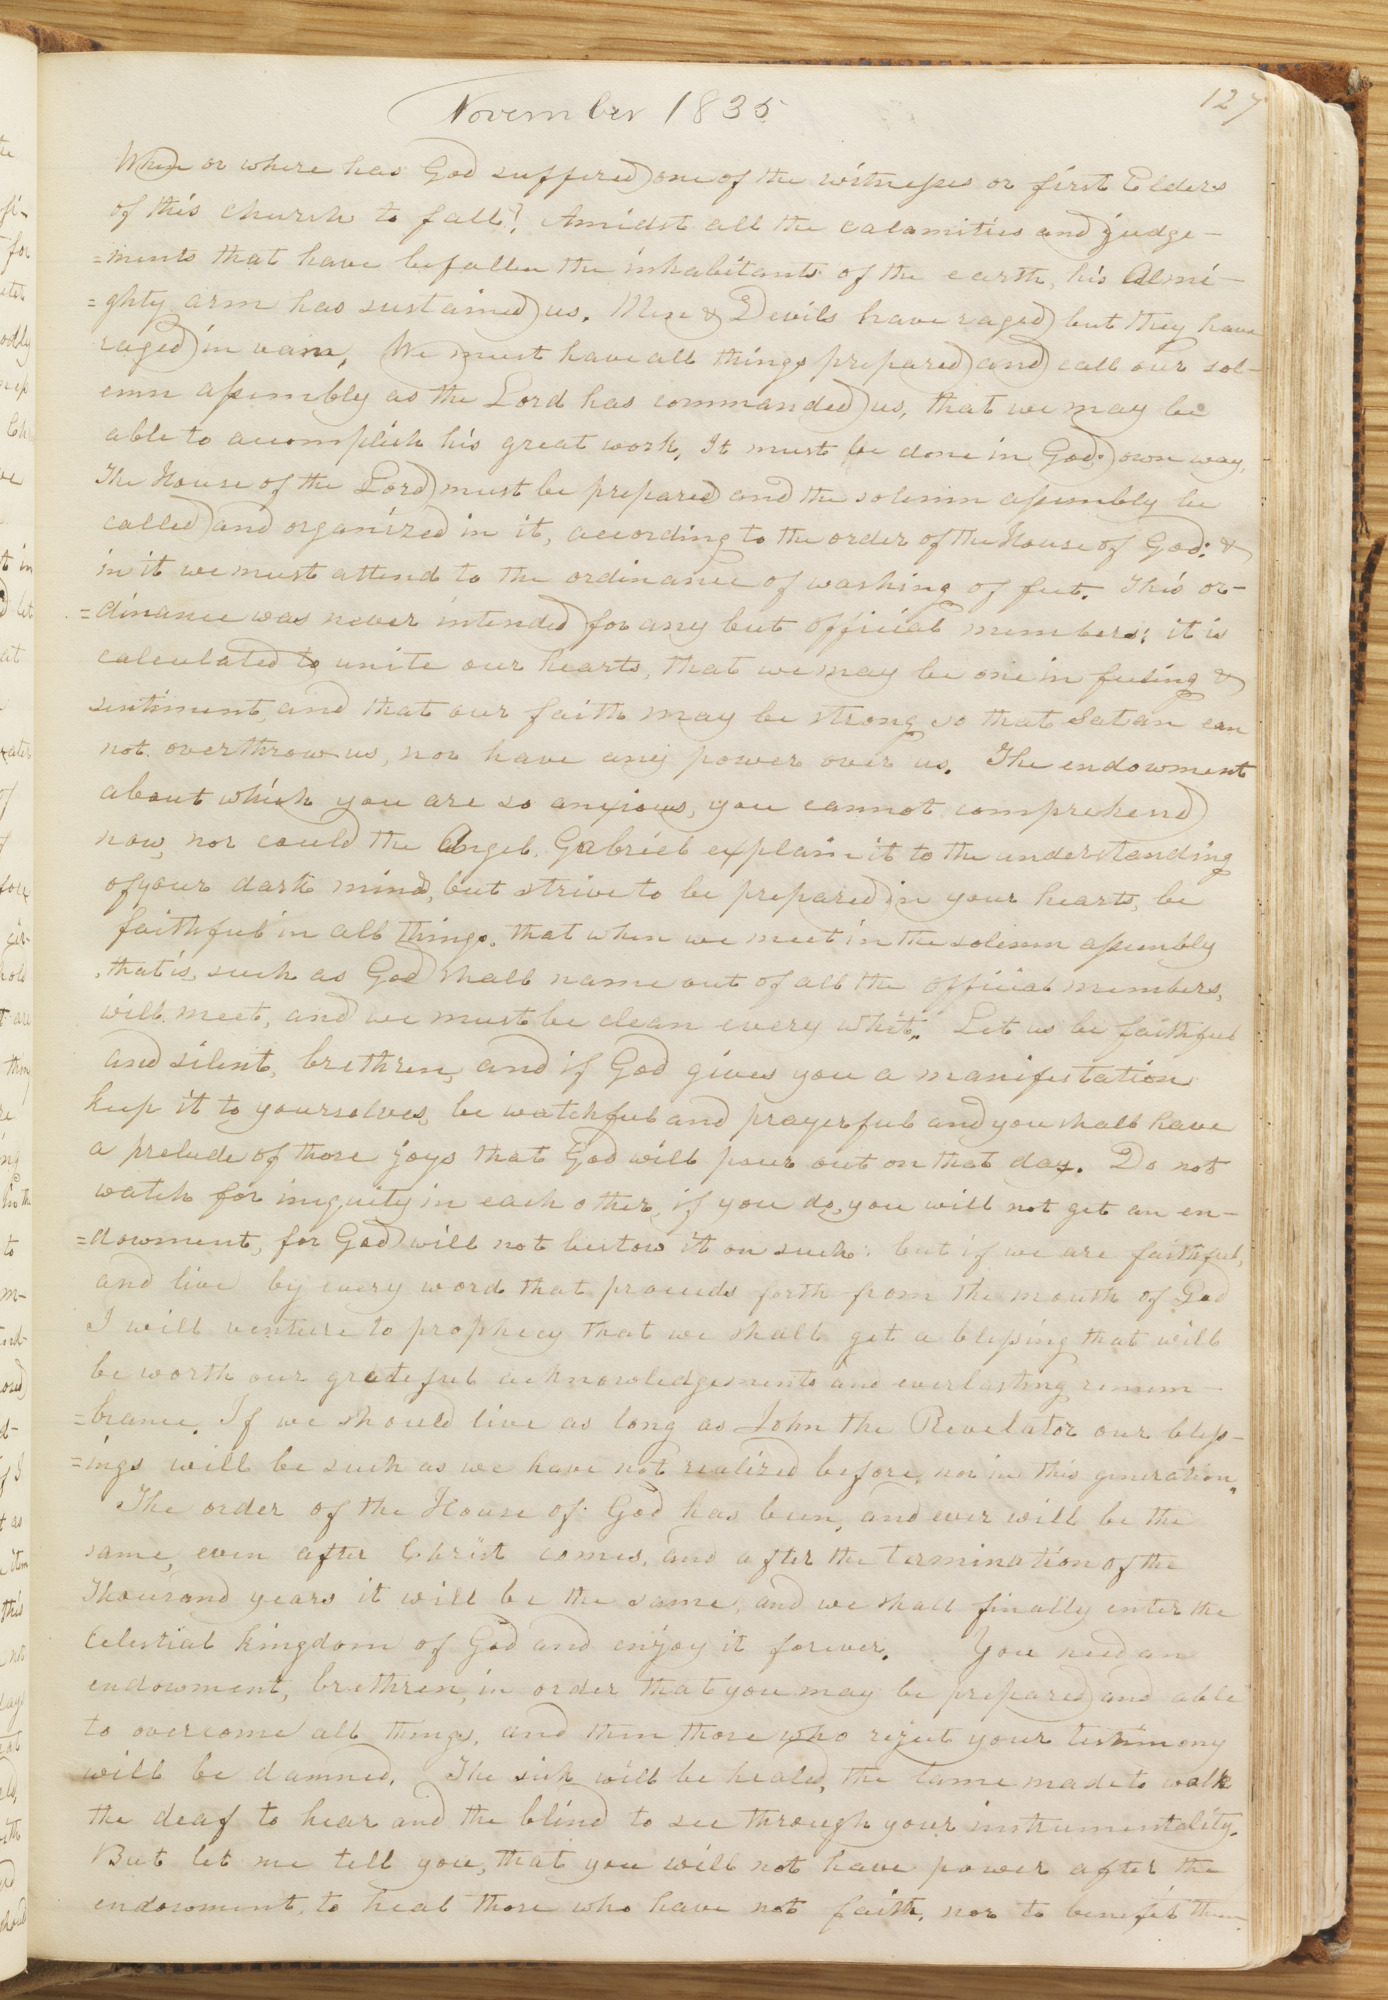 November 1835
127
When or where has God suffered one of the witnesses or first Elders
of this church to fall? Amidst all the calamities and judge-
=ments that have befallen the inhabitants of the earth, his Almi-
=ghty arm has sustained us. Men & Devils have raged but they have
raged in vain. We must have all things prepared and call our sol-
emn assembly as the Lord has commanded us, that we may be
able to accomplish his great work, It must be done in Gods own way,
The House of the Lord must be prepared and the solemn assembly be
called and organized in it, according to the order of the House of God: &
in it we must attend to the ordinance of washing of feet. This or-
=dinance was never intended for any but official members; it is
calculated to unite our hearts, that we may be one in feeling &
sentiment, and that our faith may be strong so that Satan can
not overthrow us, nor have any power over us. The endowment
about which you are so anxious, you cannot comprehend
now, nor could the Angel Gabriel explain it to the understanding
of your dark mind, but strive to be prepared in your hearts, be
faithful in all things, that when we meet in the solemn assembly
that is, such as God shall name out of all the official members,
will meet, and we must be clean every whit,. Let us be faithful
and silent, brethren, and if God gives you a manifestation
keep it to yourselves, be watchful and prayerful and you shall have
a prelude of those joys that God will pour out on that day. Do not
watch for iniquity in each other, if you do, you will not get an en-
=dowment, for God will not bestow it on such: but if we are faithful,
and live by every word that proceeds forth from the mouth of God
I will venture to prophecy that we shall get a blessing that will
be worth our grateful acknowledgements and everlasting remem-
=brance. If we should live as long as John the Revelator our bless-
=ings will be such as we have not realized before, nor in this generation.
The order of the House of God has been, and ever will be the
same, even after Christ comes, and after the termination of the
thousand years it will be the same, and we shall finally enter the
Celestial kingdom of God and enjoy it forever. You need an
endowment, brethren, in order that you may be prepared and able
to overcome all things, and then those who reject your testimony
will be damned. The sick will be healed, the lame made to walk
the deaf to hear and the blind to see through your instrumentality.
But let me tell you, that you will not have power after the
endowment, to heal those who have not faith, nor to benefit them.